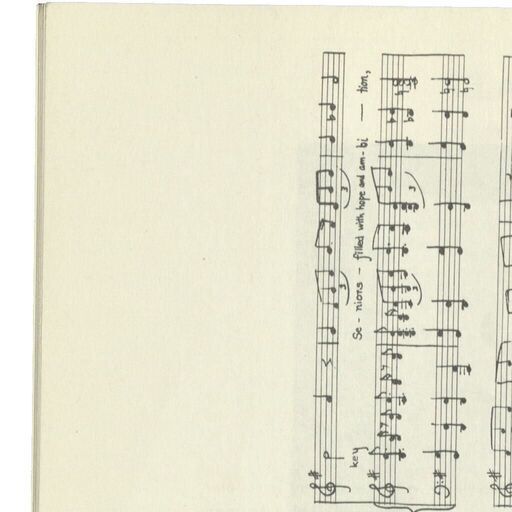 key Se - niors - filled with hope and am - bi — tion,
3 3
3 3